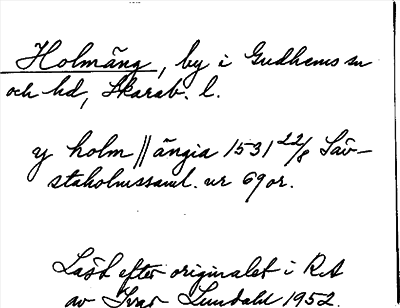 Holmäng, by i Gudhems sn
och hd, Skarab. l.
y holm || ängia 1531 22/8 Säv-
staholmssaml. nr 69 or.
Läst efter originalet i RA
av Ivar Lundahl 1952.